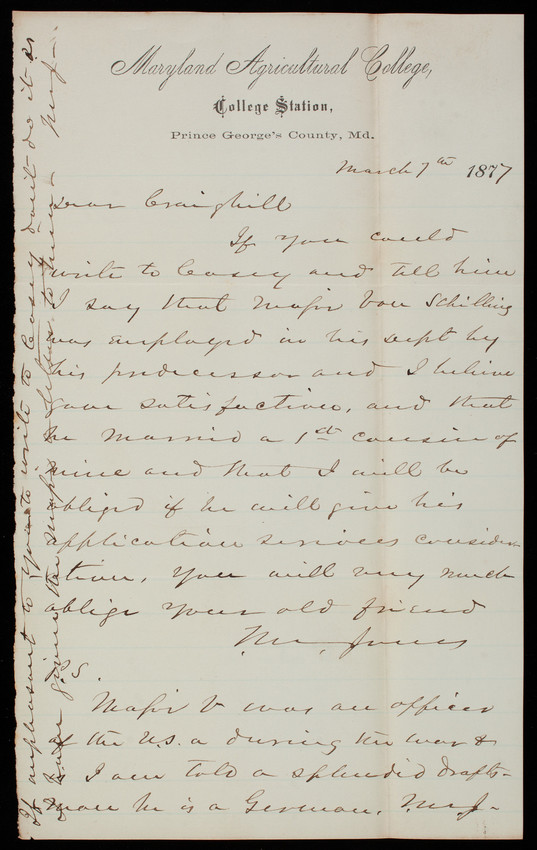 Maryland Agricultural College,
College Station,
Prince George's County, Md.
March 7th 1877
Dear Craighill
If you could
write to Casey and tell him
I say that Major Von Schilling
was employed in his dept by
his predecessor and I believe
gave satisfaction, and that
he married a 1st cousin of
mine and that I will be
obliged if he will give his
application serious considera
tion, you will very much
oblige your old friend
Wm Jones
P.S.
Major V was an officer
of the U.S.A during the war &
I am told a splendid drafts-
man he is a German. WmJ-
If unpleasant to you to write to Casey don't do it as
I have given the Major a letter to him - WmJ-